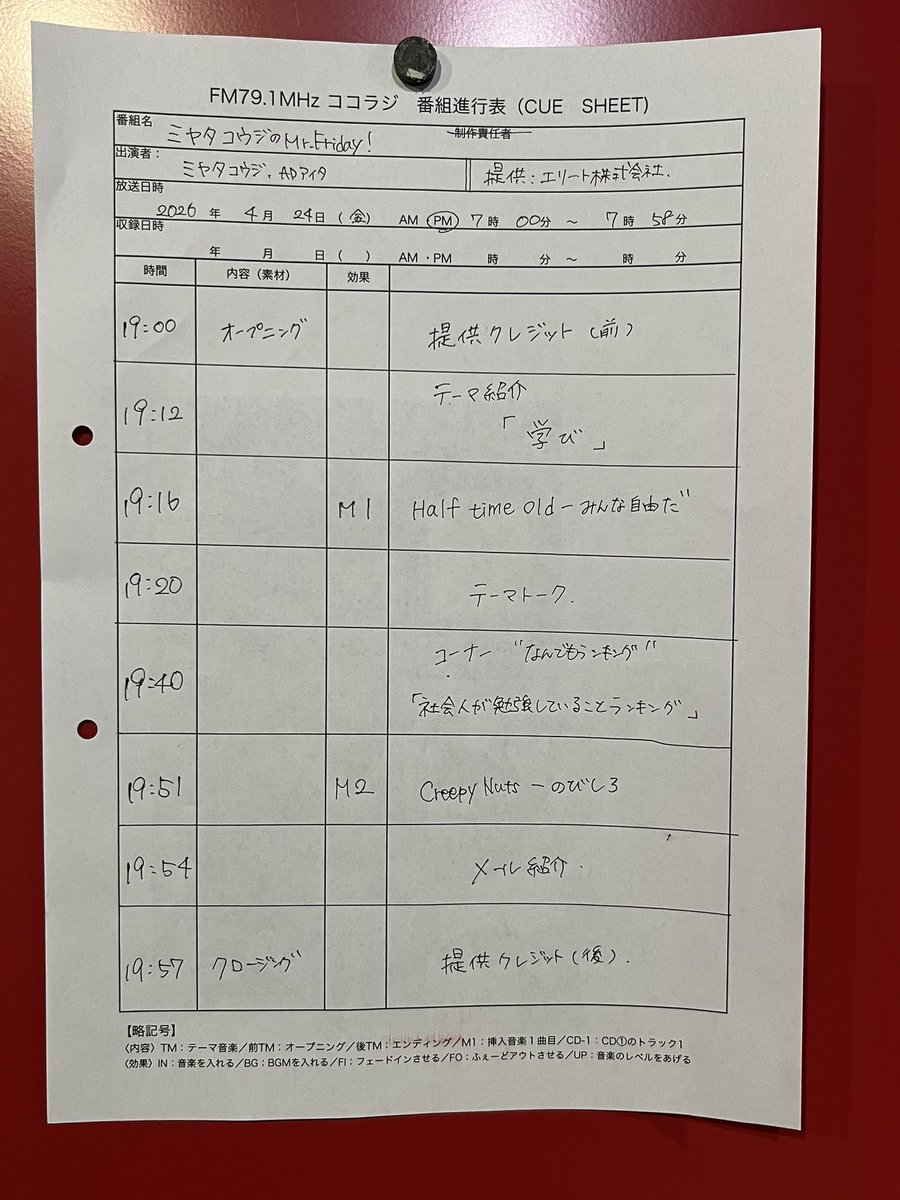 FM79.1MHz ココラジ 番組進行表（CUE SHEET）
番組名 ミヤタコウジのMr.Friday! 制作責任者
出演者： ミヤタコウジ、ADアイタ 提供：エリート株式会社.
放送日時 2026 年 4 月 24 日（金） AM・PM 7 時 00 分 〜 7 時 58 分
収録日時 年 月 日（ ） AM・PM 時 分 〜 時 分
時間 内容（素材） 効果
19:00 オープニング 提供クレジット（前）
19:12 テーマ紹介
「学び」
19:16 M1 Half time old ー みんな自由だ
19:20 テーマトーク.
19:40 コーナー "なんでもランキング"
「社会人が勉強していることランキング」
19:51 M2 Creepy Nuts ー のびしろ
19:54 メール紹介.
19:57 クロージング 提供クレジット（後）.
【略記号】
〈内容〉TM：テーマ音楽／前TM：オープニング／後TM：エンディング／M1：挿入音楽１曲目／CD-1：CD①のトラック1
〈効果〉IN：音楽を入れる／BG：BGMを入れる／FI：フェードインさせる／FO：ふぇーどアウトさせる／UP：音楽のレベルをあげる